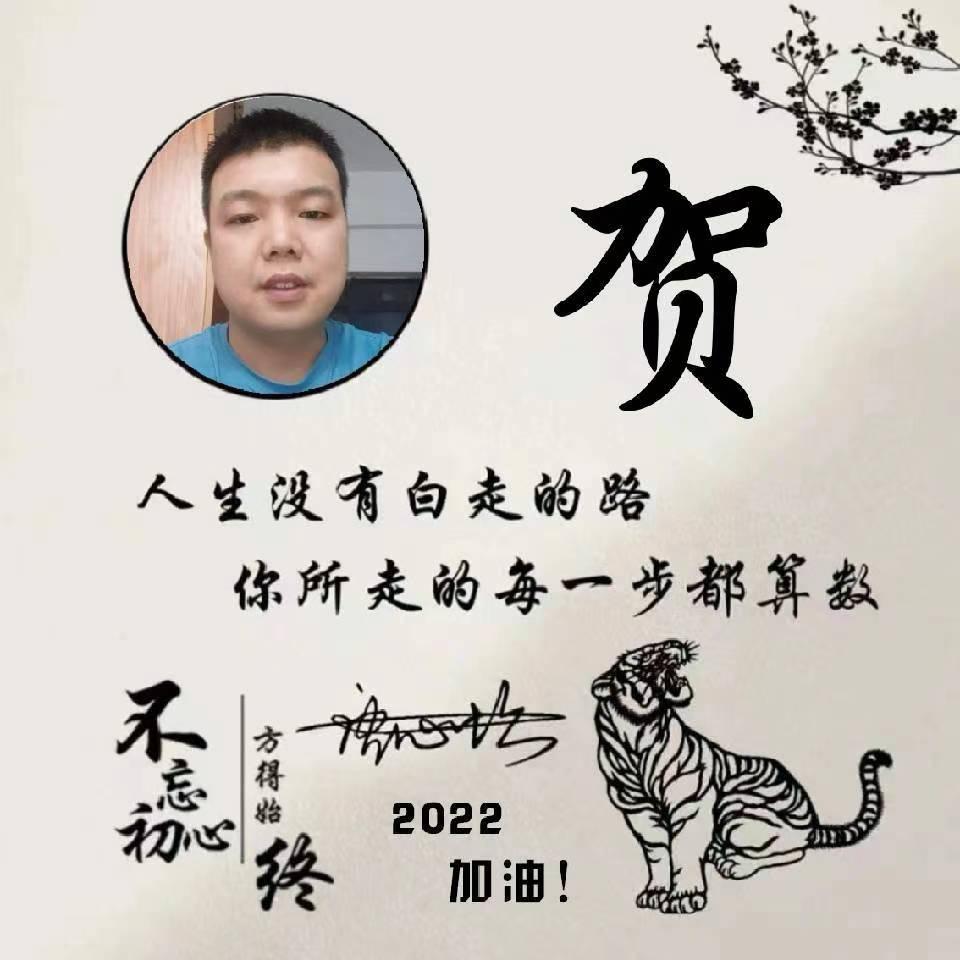 贺
人生没有白走的路
你所走的每一步都算数
不忘初心
方得始终
2022
加油!